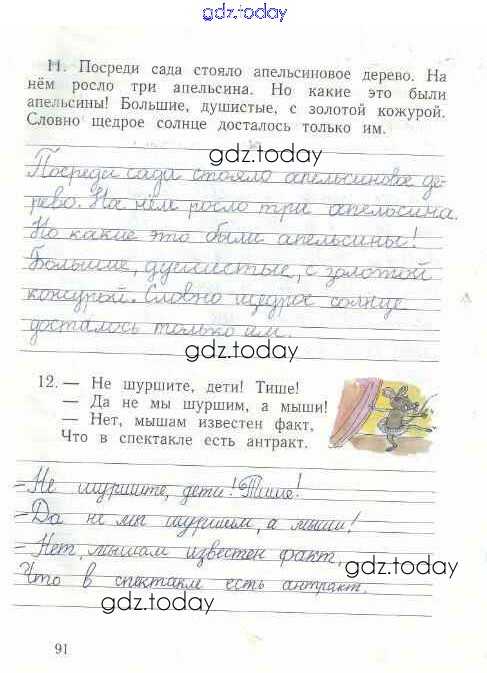 gdz.today
11. Посреди сада стояло апельсиновое дерево. На
нём росло три апельсина. Но какие это были
апельсины! Большие, душистые, с золотой кожурой.
Словно щедрое солнце досталось только им.
gdz.today
Посреди сада стояло апельсиновое де-
рево. На нём росло три апельсина.
Но какие это были апельсины!
Большие, душистые, с золотой
кожурой. Словно щедрое солнце
досталось только им.
gdz.today
12. — Не шуршите, дети! Тише!
— Да не мы шуршим, а мыши!
— Нет, мышам известен факт,
Что в спектакле есть антракт.
- Не шуршите, дети! Тише!
- Да не мы шуршим, а мыши!
- Нет, мышам известен факт,
Что в спектакле есть антракт.
gdz.today
gdz.today
91